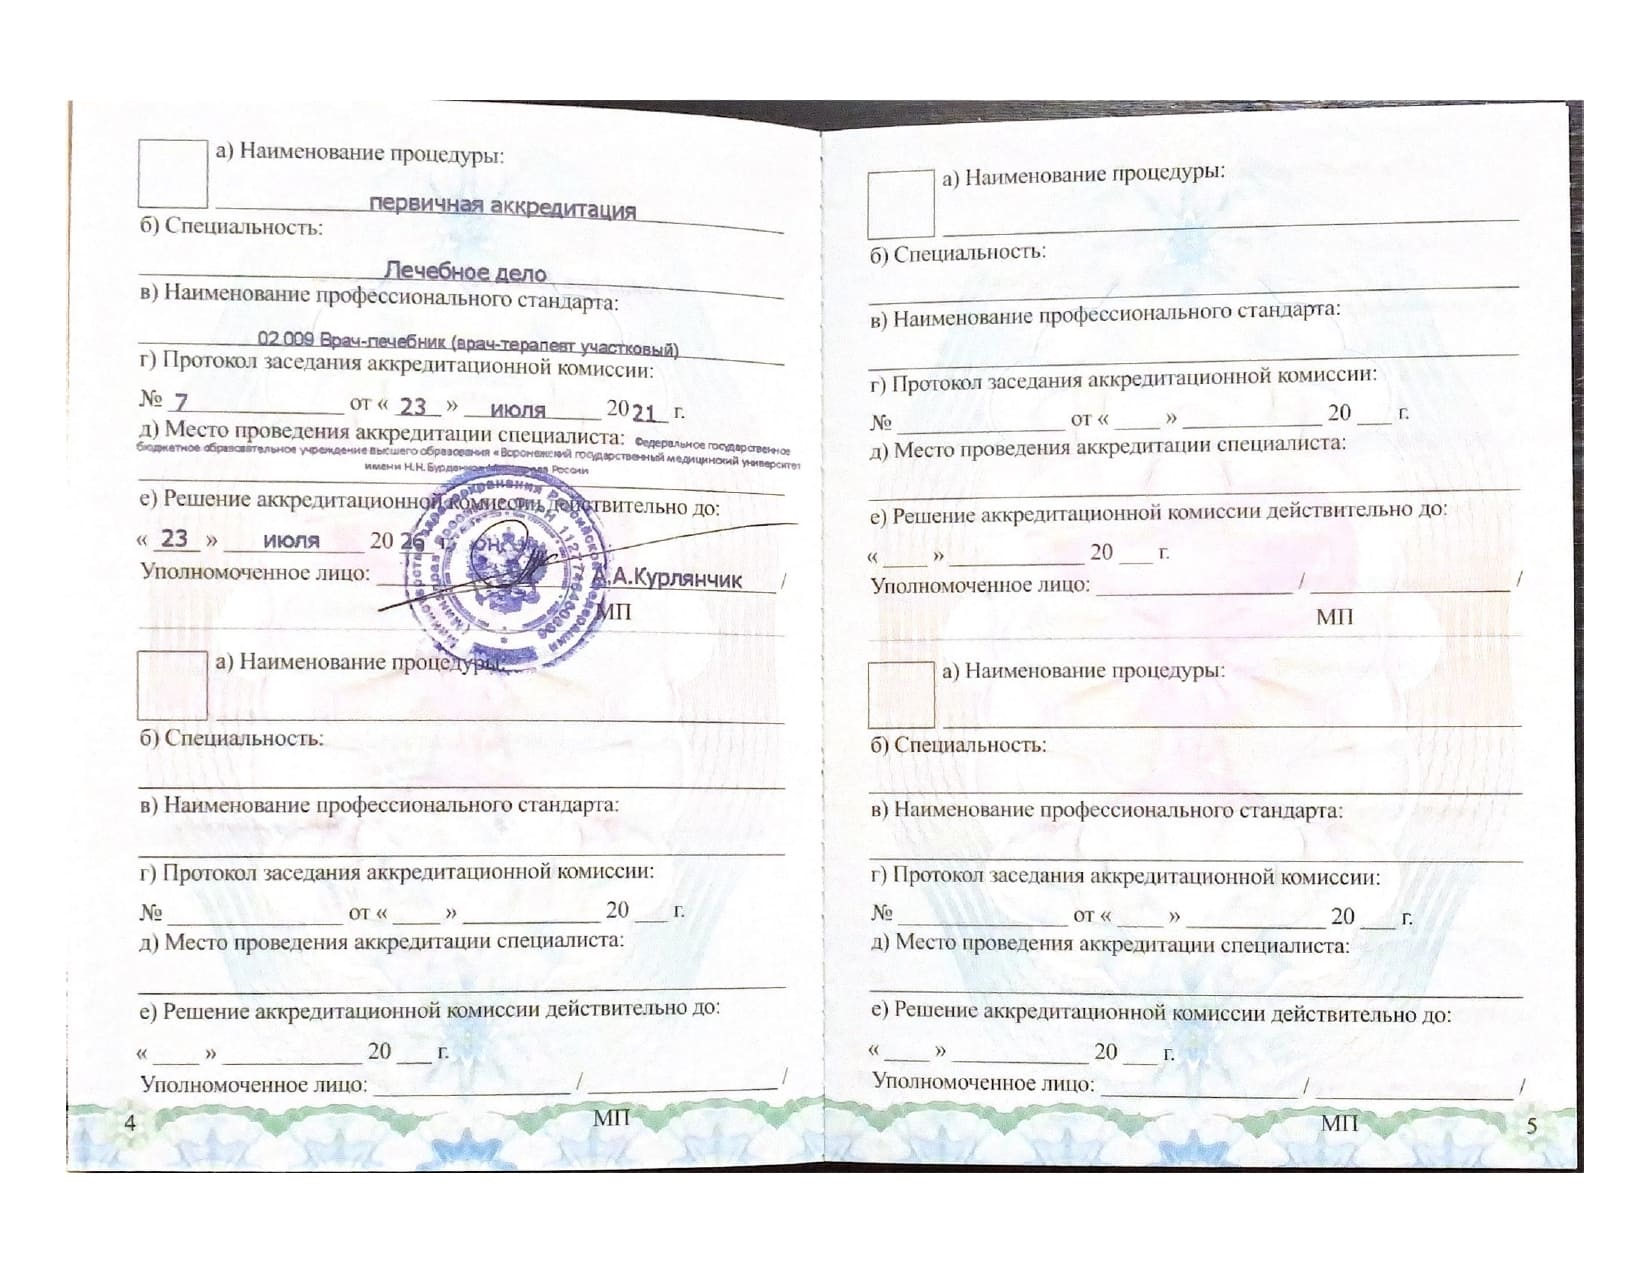 а) Наименование процедуры:
первичная аккредитация
б) Специальность:
Лечебное дело
в) Наименование профессионального стандарта:
02.009 Врач-лечебник (врач-терапевт участковый)
г) Протокол заседания аккредитационной комиссии:
№ 7 от « 23 » июля 2021 г.
д) Место проведения аккредитации специалиста: Федеральное государственное
бюджетное образовательное учреждение высшего образования «Воронежский государственный медицинский университет
имени Н.Н. Бурденко Минздрава России
е) Решение аккредитационной комиссии действительно до:
« 23 » июля 20 26 г.
Уполномоченное лицо: А.А.Курлянчик /
МП
а) Наименование процедуры:
б) Специальность:
в) Наименование профессионального стандарта:
г) Протокол заседания аккредитационной комиссии:
№ от « » 20 г.
д) Место проведения аккредитации специалиста:
е) Решение аккредитационной комиссии действительно до:
« » 20 г.
Уполномоченное лицо: / /
МП
4
а) Наименование процедуры:
б) Специальность:
в) Наименование профессионального стандарта:
г) Протокол заседания аккредитационной комиссии:
№ от « » 20 г.
д) Место проведения аккредитации специалиста:
е) Решение аккредитационной комиссии действительно до:
« » 20 г.
Уполномоченное лицо: / /
МП
а) Наименование процедуры:
б) Специальность:
в) Наименование профессионального стандарта:
г) Протокол заседания аккредитационной комиссии:
№ от « » 20 г.
д) Место проведения аккредитации специалиста:
е) Решение аккредитационной комиссии действительно до:
« » 20 г.
Уполномоченное лицо: / /
МП
5